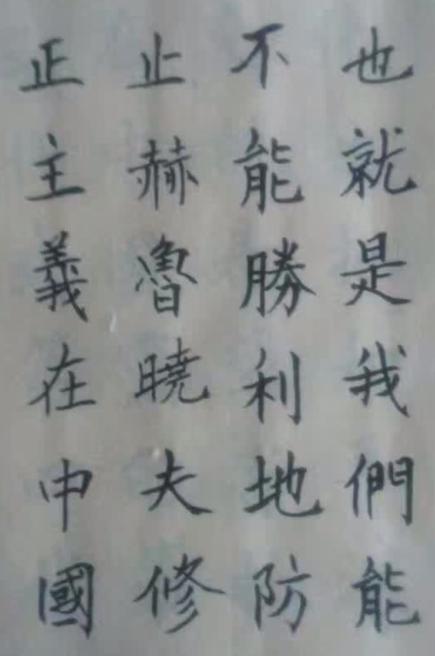 也就是我們能
不能勝利地防
止赫魯曉夫修
正主義在中國